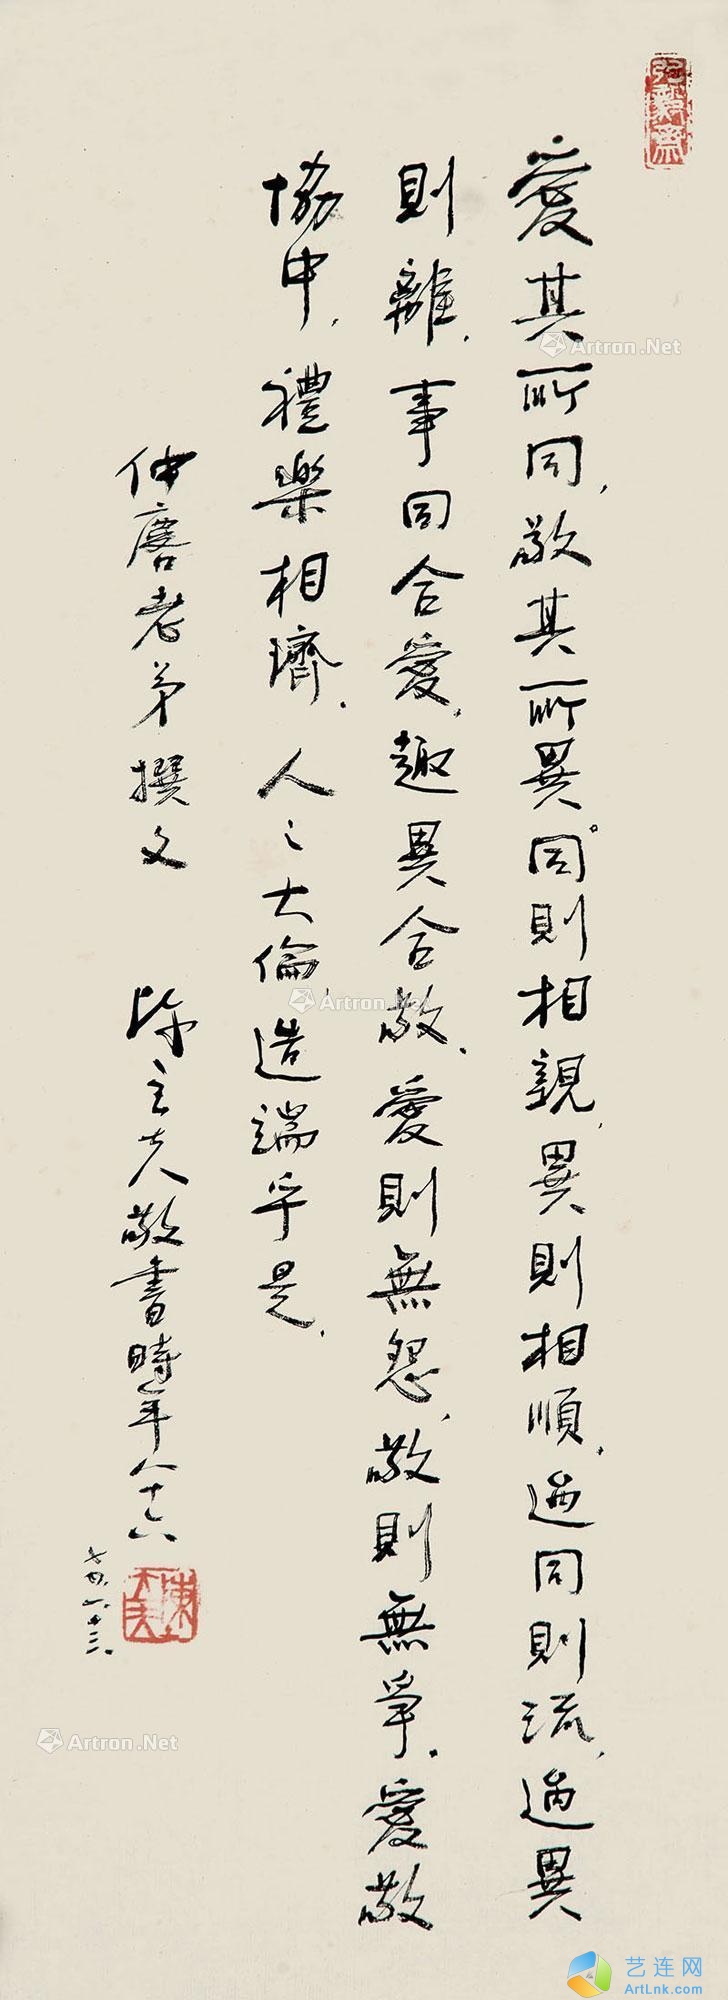 弘毅齋
愛其所同，敬其所異。同則相親，異則相順，過同則流，過異
則離，事同合愛，趣異合敬，愛則無怨，敬則無爭，愛敬
協中，禮樂相濟，人之大倫，造端乎是，
仲磨老弟撰文 陳立夫敬書時年八十六
陳立夫
Artron.Net
Artron.Net
Artron.Net
艺连网
ArtLnk.com